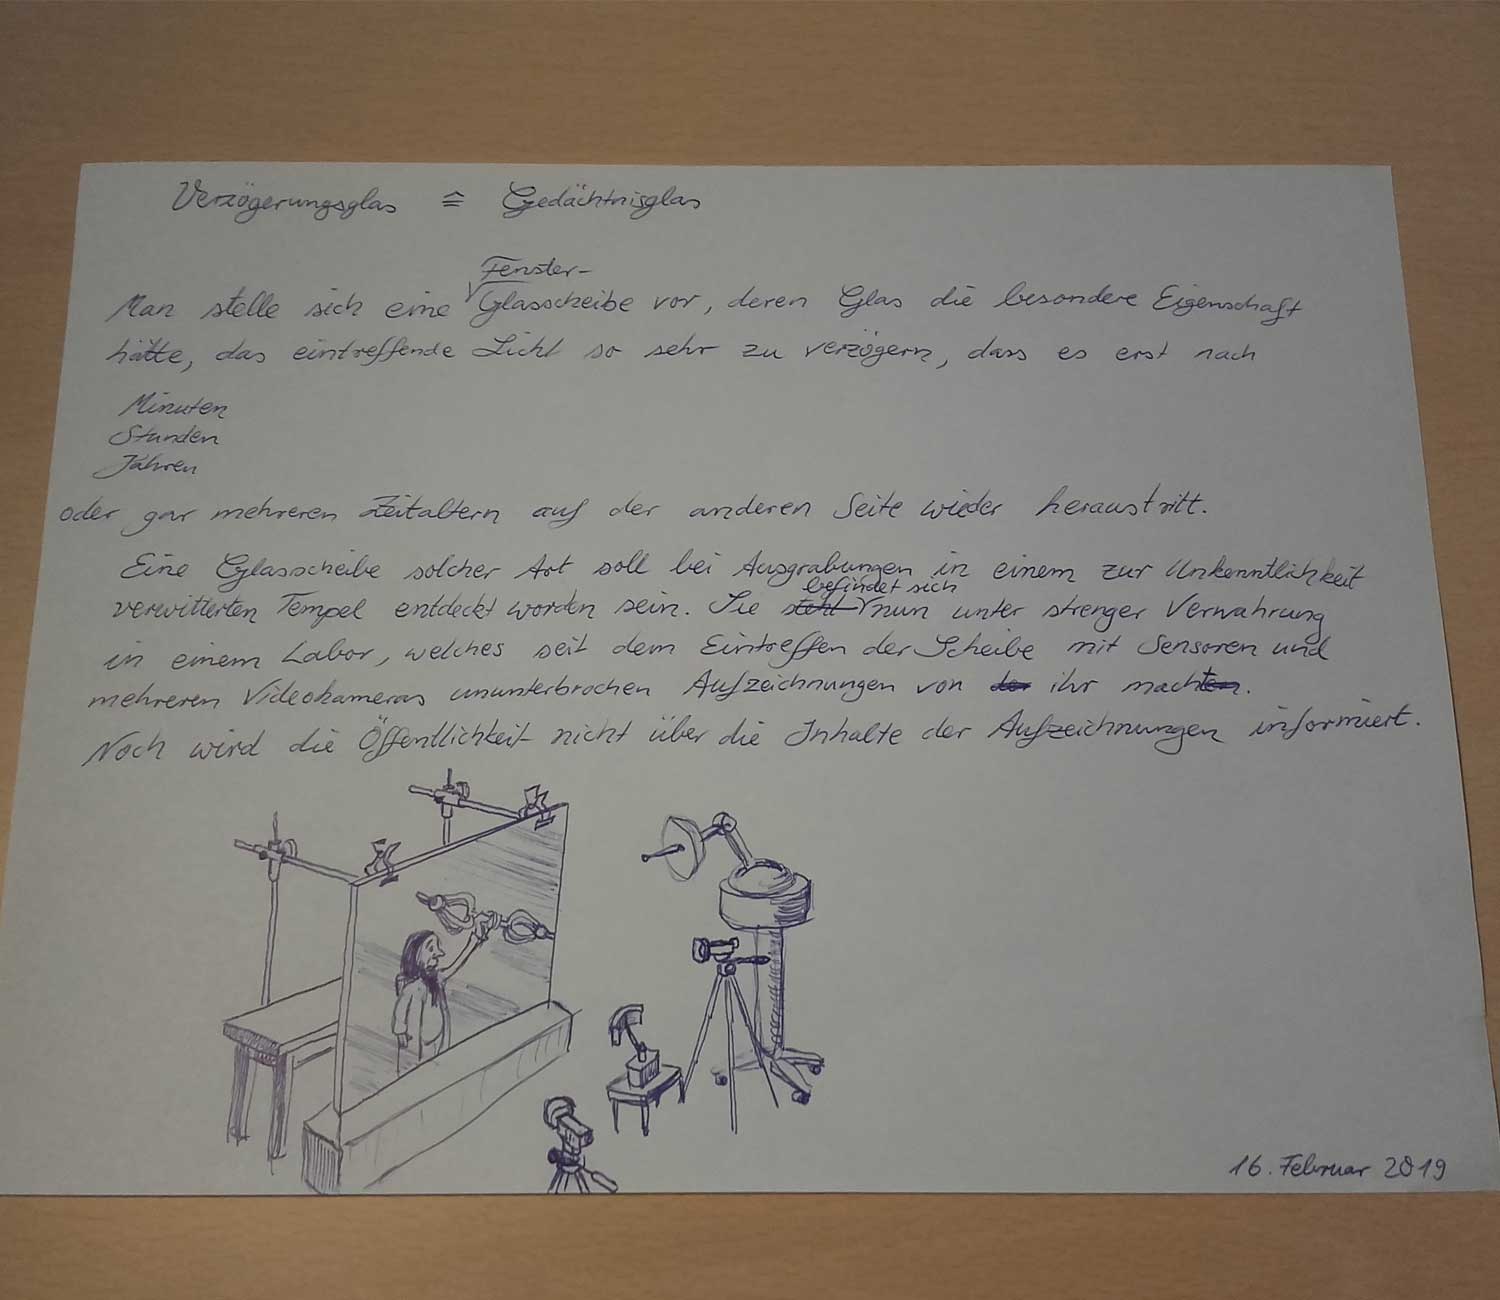 Verzögerungsglas ≙ Gedächtnisglas
Fenster-
Man stelle sich eine Glasscheibe vor, deren Glas die besondere Eigenschaft
hätte, das eintreffende Licht so sehr zu verzögern, dass es erst nach
Minuten
Stunden
Jahren
oder gar mehreren Zeitaltern auf der anderen Seite wieder heraustritt.
Eine Glasscheibe solcher Art soll bei Ausgrabungen in einem zur Unkenntlichkeit
befindet sich
verwitterten Tempel entdeckt worden sein. Sie steht nun unter strenger Verwahrung
in einem Labor, welches seit dem Eintreffen der Scheibe mit Sensoren und
mehreren Videokameras ununterbrochen Aufzeichnungen von der ihr machten.
Noch wird die Öffentlichkeit nicht über die Inhalte der Aufzeichnungen informiert.
16. Februar 2019